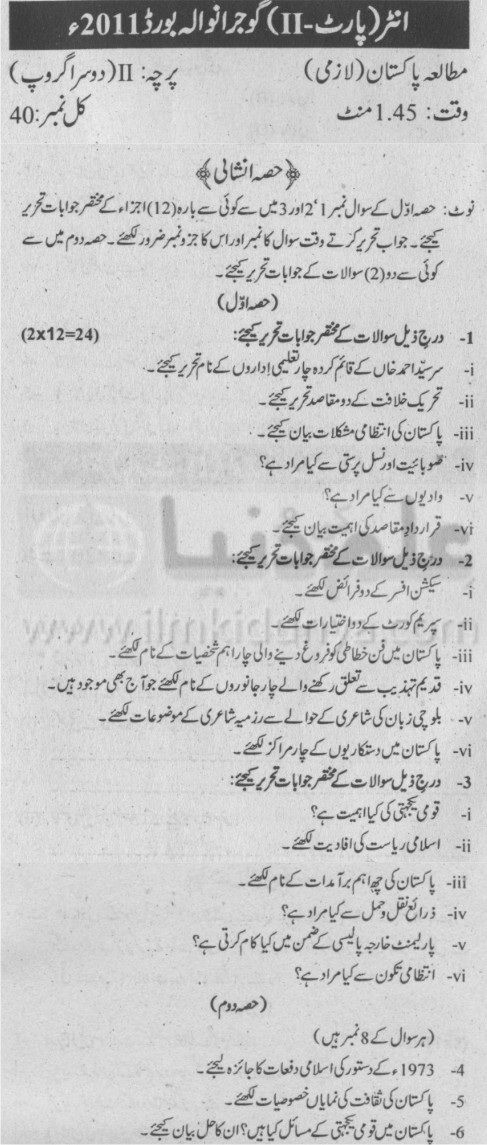 انٹر (پارٹ-II) گوجرانوالہ بورڈ 2011ء
مطالعہ پاکستان (لازمی) پرچہ: II (دوسرا گروپ)
وقت: 1.45 منٹ کل نمبر: 40
﴿حصہ انشائی﴾
نوٹ: حصہ اوّل کے سوال نمبر 1، 2 اور 3 میں سے کوئی سے بارہ (12) اجزاء کے مختصر جوابات تحریر
کیجئے۔ جواب تحریر کرتے وقت سوال کا نمبر اور اس کا جزو نمبر ضرور لکھئے۔ حصہ دوم میں سے
کوئی سے دو (2) سوالات کے جوابات تحریر کیجئے۔
(حصہ اوّل)
1- درج ذیل سوالات کے مختصر جوابات تحریر کیجئے: (2x12=24)
i- سرسیّد احمد خاں کے قائم کردہ چار تعلیمی اداروں کے نام تحریر کیجئے۔
ii- تحریک خلافت کے دو مقاصد تحریر کیجئے۔
iii- پاکستان کی انتظامی مشکلات بیان کیجئے۔
iv- صوبائیت اور نسل پرستی سے کیا مراد ہے؟
v- وادیوں سے کیا مراد ہے؟
vi- قرارداد مقاصد کی اہمیت بیان کیجئے۔
2- درج ذیل سوالات کے مختصر جوابات تحریر کیجئے:
i- سیکشن افسر کے دو فرائض لکھئے۔
ii- سپریم کورٹ کے دو اختیارات لکھئے۔
iii- پاکستان میں فن خطاطی کو فروغ دینے والی چار اہم شخصیات کے نام لکھئے۔
iv- قدیم تہذیب سے تعلق رکھنے والے چار جانوروں کے نام لکھئے جو آج بھی موجود ہیں۔
v- بلوچی زبان کی شاعری کے حوالے سے رزمیہ شاعری کے موضوعات لکھئے۔
vi- پاکستان میں دستکاریوں کے چار مراکز لکھئے۔
3- درج ذیل سوالات کے مختصر جوابات تحریر کیجئے:
i- قومی یکجہتی کی کیا اہمیت ہے؟
ii- اسلامی ریاست کی افادیت لکھئے۔
iii- پاکستان کی چھ اہم برآمدات کے نام لکھئے۔
iv- ذرائع نقل و حمل سے کیا مراد ہے؟
v- پارلیمنٹ خارجہ پالیسی کے ضمن میں کیا کام کرتی ہے؟
vi- انتظامی تکون سے کیا مراد ہے؟
(حصہ دوم)
(ہر سوال کے 8 نمبر ہیں)
4- 1973ء کے دستور کی اسلامی دفعات کا جائزہ لیجئے۔
5- پاکستان کی ثقافت کی نمایاں خصوصیات لکھئے۔
6- پاکستان میں قومی یکجہتی کے مسائل کیا ہیں؟ ان کا حل بیان کیجئے۔
علم کی دنیا
www.ilmkidunya.com